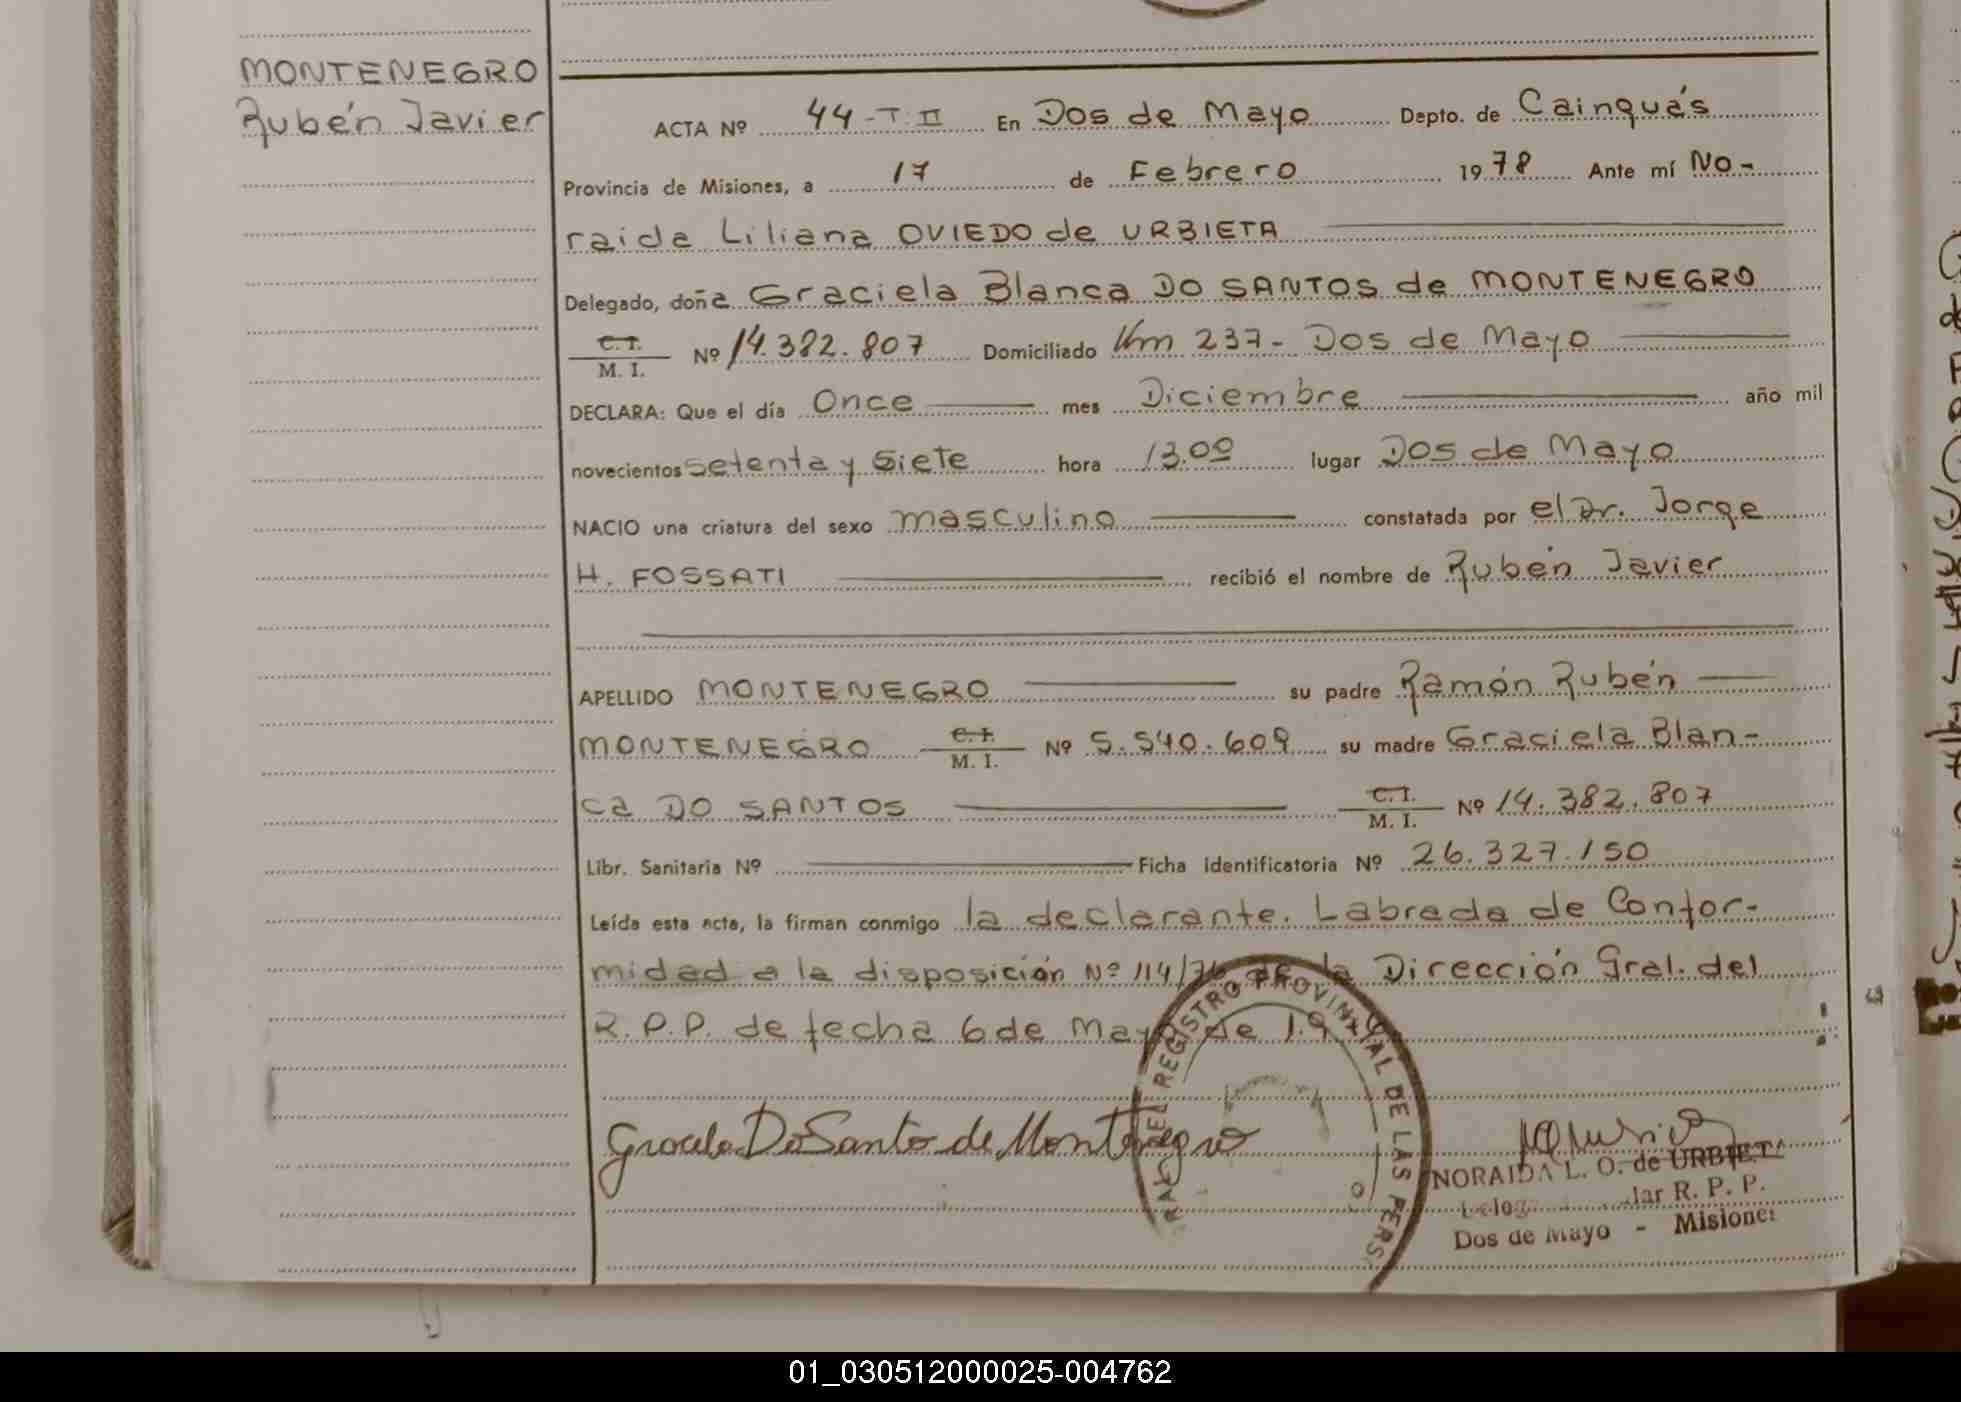 MONTENEGRO
Rubén Javier
ACTA Nº 44-T.II En Dos de Mayo Depto. de Cainguás
Provincia de Misiones, a 17 de Febrero 1978 Ante mí No-
raida Liliana OVIEDO de URBIETA
Delegado, doña Graciela Blanca DO SANTOS de MONTENEGRO
C.I. / M. I. Nº 14.382.807 Domiciliado Km 237- Dos de Mayo
DECLARA: Que el día Once mes Diciembre año mil
novecientos setenta y siete hora 13.00 lugar Dos de Mayo
NACIO una criatura del sexo masculino constatada por el Dr. Jorge
H. FOSSATI recibió el nombre de Rubén Javier
APELLIDO MONTENEGRO su padre Ramón Rubén
MONTENEGRO C.I. / M. I. Nº 5.540.609 su madre Graciela Blan-
ca DO SANTOS C.I. / M. I. Nº 14.382.807
Libr. Sanitaria Nº Ficha identificatoria Nº 26.327.150
Leída esta acta, la firman conmigo la declarante. Labrada de Confor-
midad a la disposición Nº 114/76 de la Dirección Gral. del
R.P.P. de fecha 6 de Mayo de 1.9
REGISTRO PROVINCIAL DE LAS PERS
Graciela Do Santo de Montenegro
NORAIDA L. O. de URBIETA
lar R. P. P.
Dos de Mayo - Misiones
01_030512000025-004762